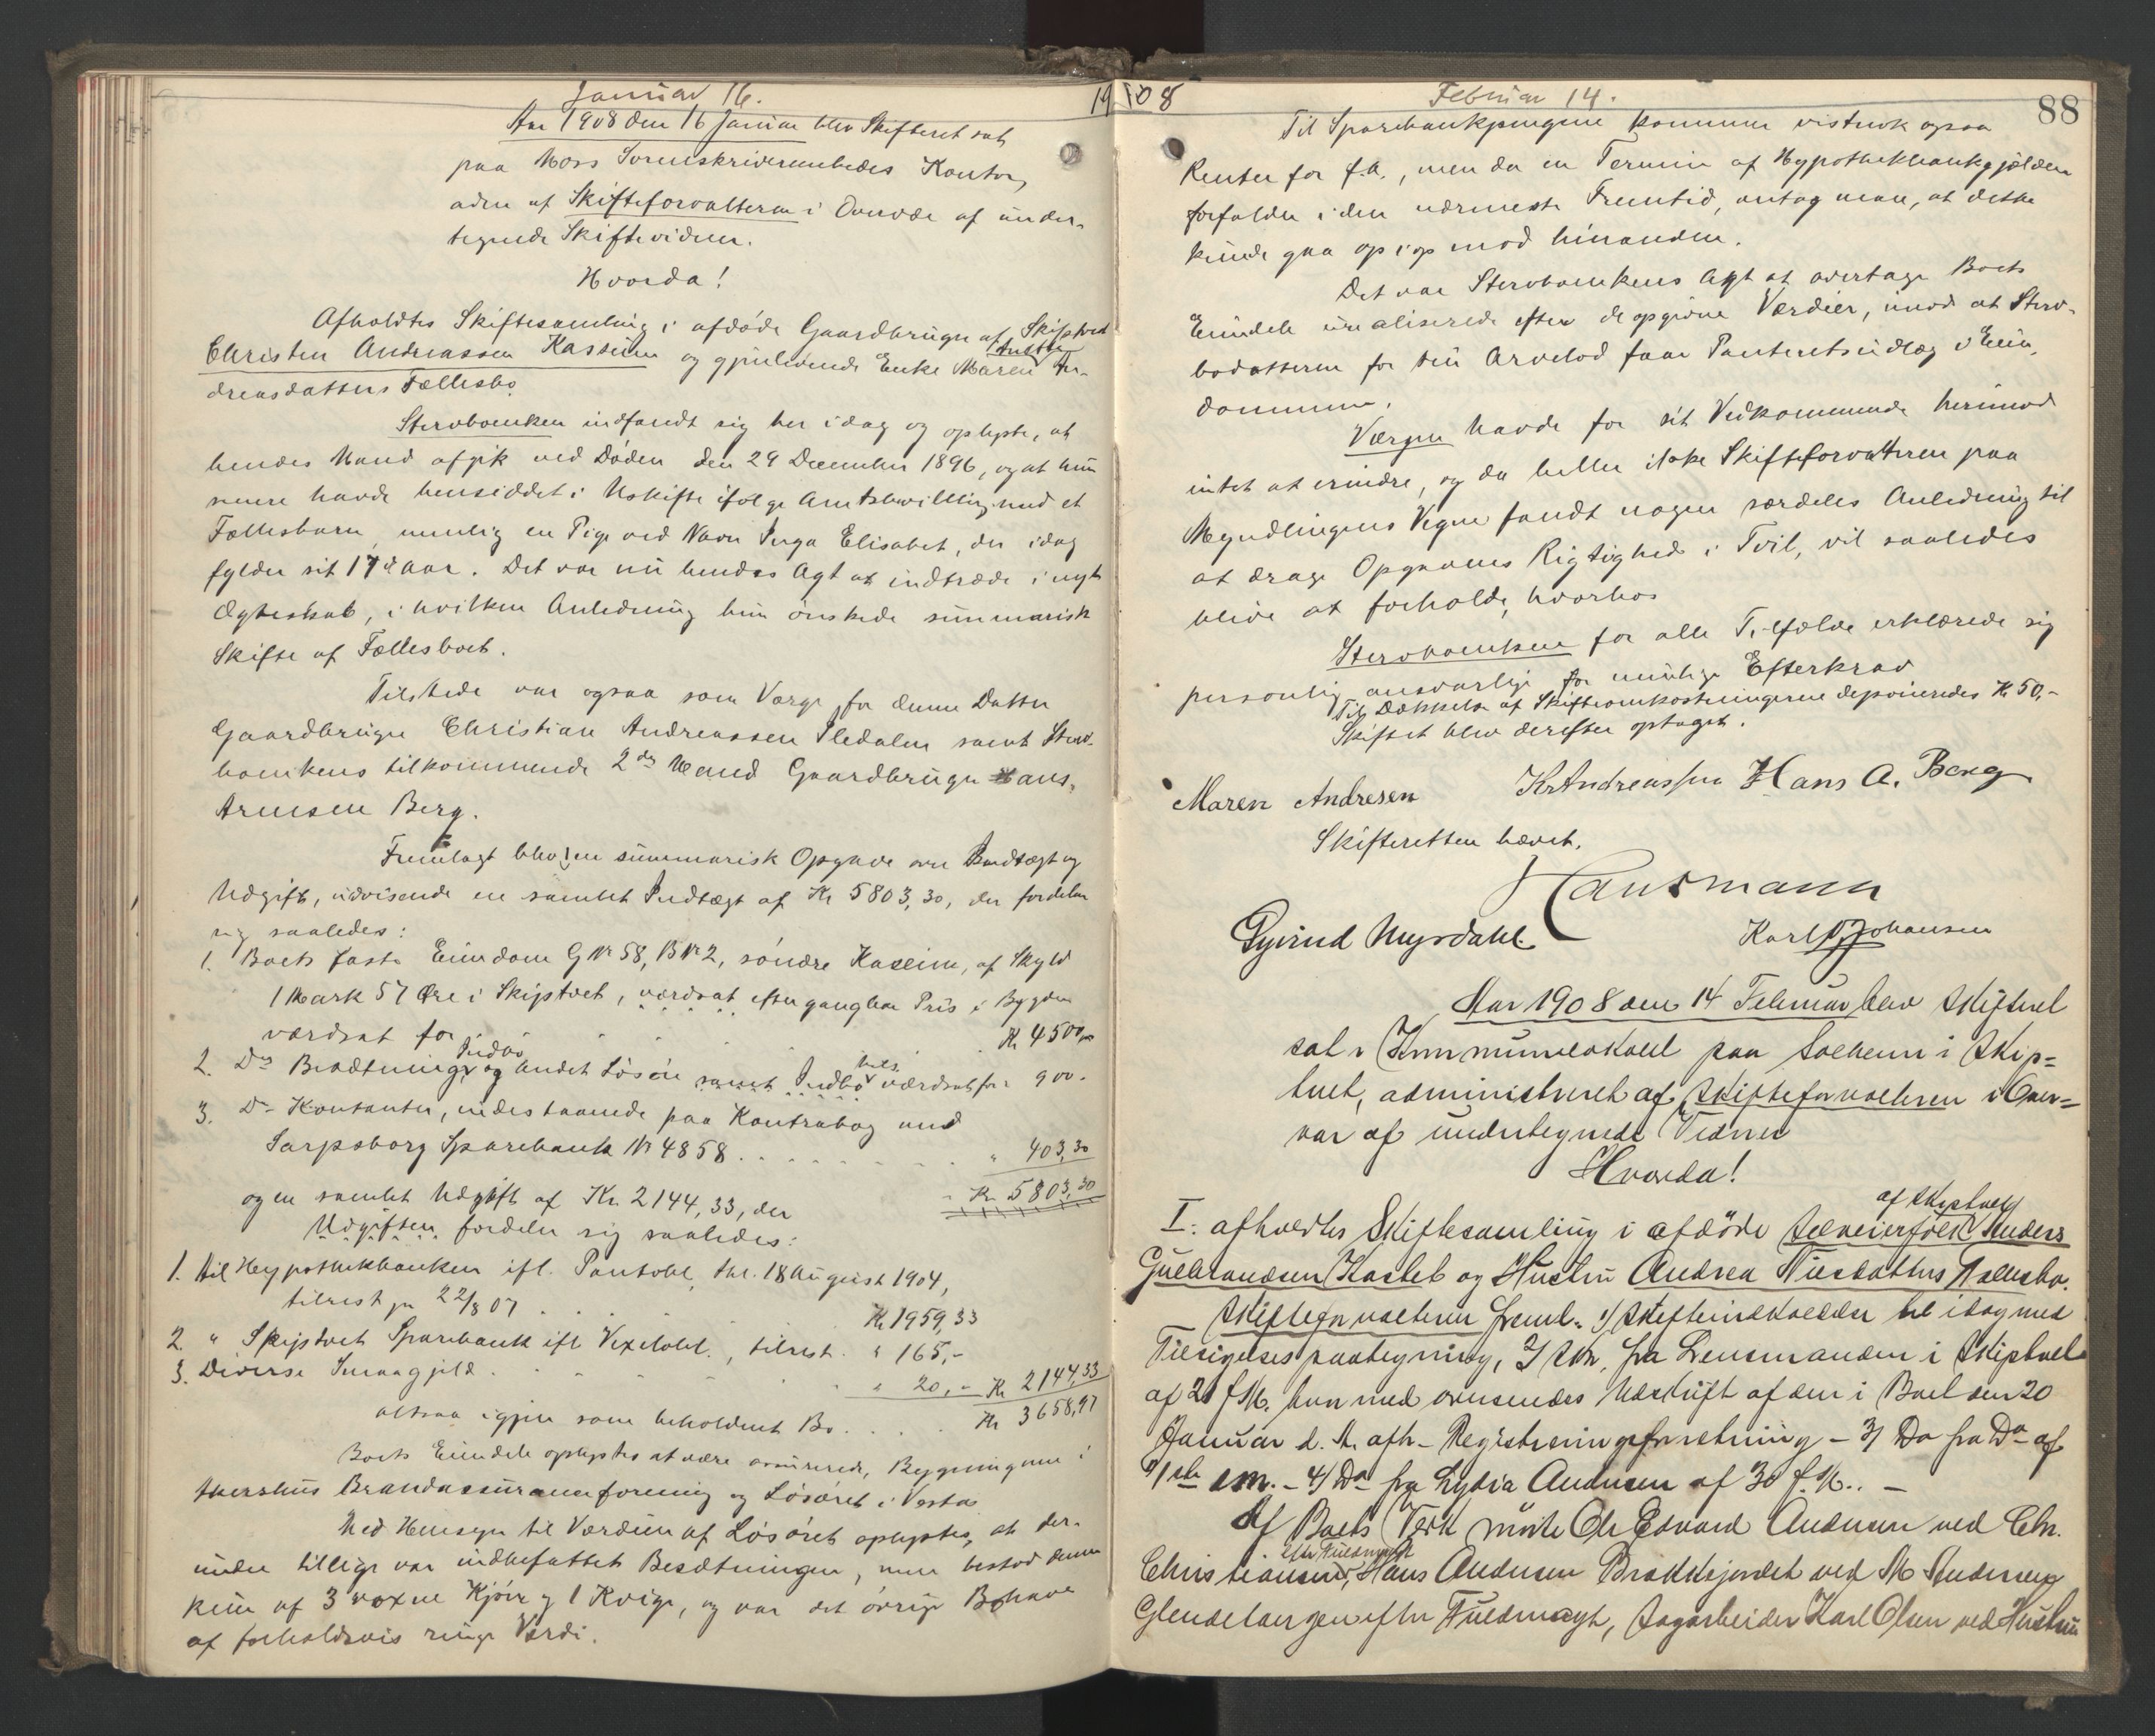 Januar 16.
19
Aar 1908 den 16 Januar blev Skifteret sat
paa Moss Sorenskriverembedes Kontor,
adm af Skifteforvalteren i Overvær af under-
tegnede Skiftevidner.
Hvorda!
Afholdtes Skiftesamling i afdøde Gaardbruger af Skiptvet
Christen Andreassen Kasseim og gjenlevende Enke Maren An-
dreasdatters Fællesbo.
Stervboenken indfandt sig her idag og oplyste, at
hendes Mand afgik ved Døden den 29 December 1896, og at hun
senere havde hensiddet i Uskifte ifølge Amtsbevilling med et
Fællesbarn, nemlig en Pige ved Navn Inga Elisabet, der idag
fylder sit 17de Aar. Det var nu hendes Agt at indtræde i nyt
Ægteskab, i hvilken Anledning hun ønskede summarisk
Skifte af Fællesboet.
Tilstede var ogsaa som Værge for denne Datter
Gaardbruger Christian Andreassen Sledalen samt Sterv-
boenkens tilkommende 2den Mand Gaardbruger Hans
Arnesen Berg.
Fremlagt blev 1) en summarisk Opgave over Indtægt og
Udgift, udvisende en samlet Indtægt af Kr 5803,30, der fordeler
sig saaledes:
1. Boets faste Eiendom G Nr 58, B Nr 2, søndre Kasseim, af Skyld
1 Mark 57 Øre i Skiptvet, værdsat efter gangbar Pris i Bygden
værdsat for Kr 4500,00
2. Ds Besætning, Indbo og andet Løsøre samt Indbo værdsat for " 900.
3. Ds Kontanter, indestaaende paa Kontrabog med
Sarpsborg Sparebank Nr 4858 . . . . " 403,30
Kr 5803,30
og en samlet Udgift af Kr. 2144,33, der
Udgiften fordeler sig saaledes:
1. til Hypothekbanken ifl. Pantobl. thl. 18 August 1904,
tilrest pr 22/8 07 . . . Kr 1959,33
2. " Skiptvet Sparebank ifl Vexelobl., tilrest. " 165,-
3. Diverse Smaagjæld . . . . " 20,- Kr 2144,33
altsaa igjen som beholdent Bo . . . . Kr 3658,97
Boets Eiendele oplystes at være assurerede, Bygningerne i
Akershus Brandassuranceforening og Løsøret i Vesta
Med Hensyn til Værdien af Løsøret oplystes, at der-
under tillige var indbefattet Besætningen, men bestod denne
kun af 3 voxne Kjør og 1 Kvige, og var det øvrige Bohave
af forholdsvis ringe Værdi.
08
Februar 14.
88
Til Sparebankpengene kommer vistnok ogsaa
Renter for f.A., men da en Termin af Hypothekbankgjælden
forfalder i den nærmeste Fremtid, antog man, at dette
kunde gaa op i op mod hinanden.
Det var Stervboenkens Agt at overtage Boets
Eiendele urealiserede efter de opgivne Værdier, imod at Sterv-
bodatteren for sin Arvelod faar Panteretsudlæg i Eien-
dommen.
Værgen havde for sit Vedkommende herimod
intet at erindre, og da heller ikke Skifteforvalteren paa
Myndlingens Vegne fandt nogen særdeles Anledning til
at drage Opgavens Rigtighed i Tvil, vil saaledes
blive at forholde, hvorhos
Stervboenken for alle Tilfælde erklærede sig
personlig ansvarlig for mulige Efterkrav
Til Dækkelse af Skifteomkostningerne deponeredes Kr 50,-
Skiftet blev derefter optaget.
Maren Andresen Kr Andreassen Hans A. Berg
Skifteretten hævet.
Hansmann
Eyvind Myrdahl Karl O Johansen
Aar 1908 den 14 Februar blev Skifteret
sat i Kommunelokalet paa Solheim i Skip=
tvet, administreret af Skifteforvalteren i Over=
vær af undertegnede Vidner
Hvorda!
I. afholdtes Skiftesamling i afdøde Selveierfolk af Skiptvet Anders
Gulbrandsen Kaslet og Hustru Andrea Nilsdatters Fællesbo.
Skifteforvalteren freml. 1) Skifteindkaldelse til idag med
Tilsigelsespaategning, 2) Skr. fra Lensmanden i Skiptvet
af 21 f.M. hvormed oversendes Udskrift af den i Boet den 20
Januar d. A. afh. Registreringsforretning - 3) Do fra Do af
11/ - 4) Do fra Lydia Andersen af 30 f. M. . -
Af Boets Vedk mødte Ole Edvard Andersen ved Chr.
Christiansen efter Fuldmagt, Hans Andersen Brækkejordet ved M Andersen
Glendebergen efter Fuldmagt, Sagarbeider Karl Olsen ved Hustru